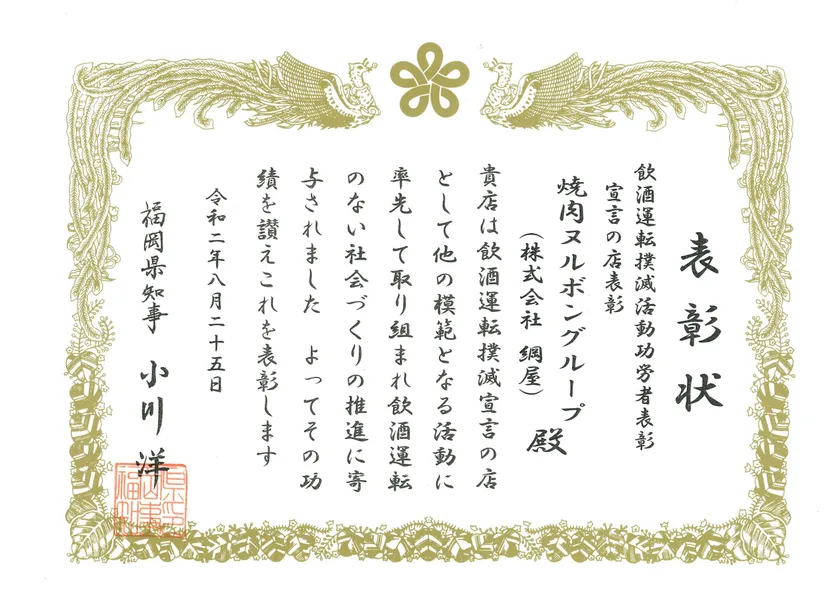 表彰状
飲酒運転撲滅活動功労者表彰
宣言の店表彰
焼肉ヌルボングループ
(株式会社 綱屋) 殿
貴店は飲酒運転撲滅宣言の店
として他の模範となる活動に
率先して取り組まれ飲酒運転
のない社会づくりの推進に寄
与されました よってその功
績を讃えこれを表彰します
令和二年八月二十五日
福岡県知事 小川 洋